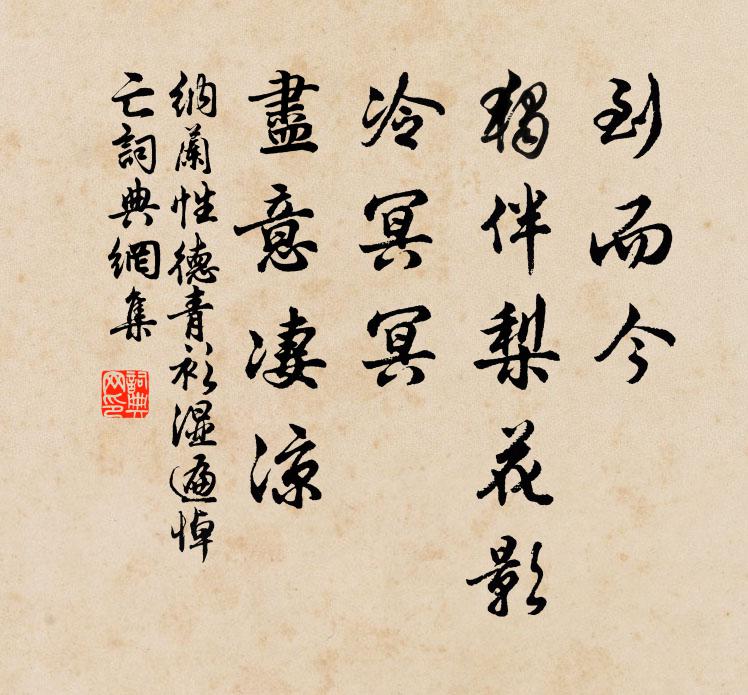 到而今
獨伴梨花影
冷冥冥
盡意凄涼
納蘭性德青衫濕遍悼
亡詞典網集
詞典
网印